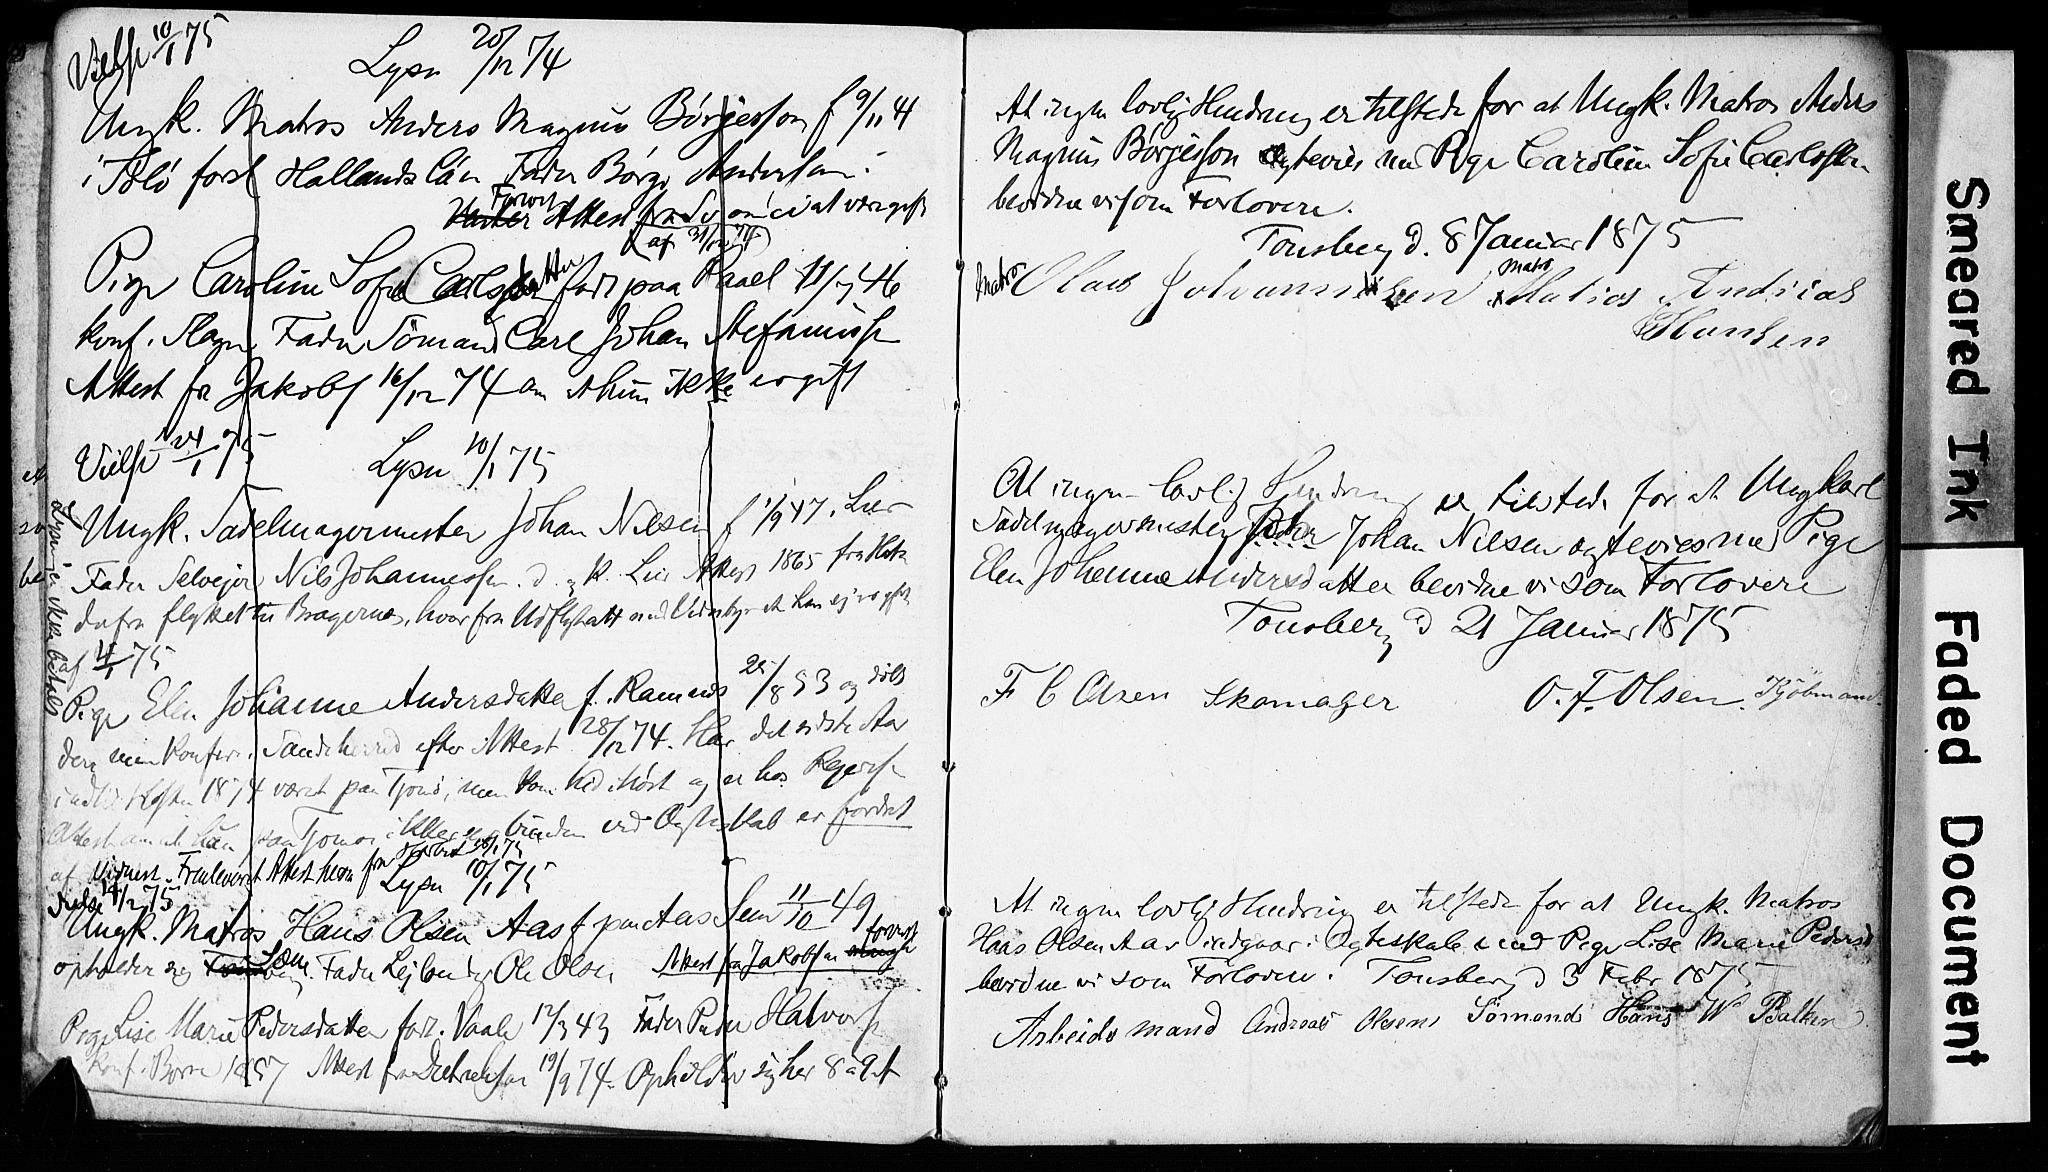 Vielse 10/1 75
Lysn 20/12 74
Ungk. Matros Anders Magnus Börjesson f 9/11 41
i Tölö forsl Hallands län Fader Börge Andersen.
Forevist Attest fra Sv om ei at være gift
(af 31/12 74)
Pige Caroline Sofie Carlsdatter født paa 11/7 46
konf. Slagn Fader Sömand Carl Johan Stefanuss
Attest fra Jakobs 16/12 74 om at hun ikke er gift
Vielse 24/1 75
Lysn 10/1 75
Ungk. Sadelmagermester Johan Nilsen f 1/9 47. Lier
Fader Selveier Nils Johannessen d. og k. Lier Attest 1865 fra
derfra flyttet til Bragernes, hvorfra Udflytatt at han ej er gift
af 4/1 75
Lysn. er ikke betalt
Pige Elen Johanne Andersdatter f. Ramnes 25/8 53 og døbt
der, men Konfir. Sandeherred efter Attest 28/12 74. Har det sidste Aar
indtil Høsten 1874 været paa Tjømø, men kom hid i Høst og er hos
Attest om at hun paa Tjømø ikke er bunden ved Ægteskab er fordret
af Vidnest. Fremleveret Attest herom fra
Lysn 10/1 75
Vielse 14/2 75
Ungk. Matros Hans Olsen Aas f paa Aas Sem 11/10 49
opholder sig Sem. Fader Lejlending Ole Olsen Attest fra Jakobsen forevist
Pige Lise Marie Pedersdatter født. Vaale 12/3 43 Fader Peder Halvors
Konf. Borre 1857 Attest fra 19/9 74. Opholder sig her 8 a 9 Aar
At ingen lovlig Hindring er tilstede for at Ungk. Matros Anders
Magnus Börjesson ægtevies med Pige Caroline Sofie Carlsdatter
bevidne vi som Forlovere.
Tønsberg d. 8 Januar 1875
Matros Olaus Johannessen Matros Matias Andreas
Hansen
At ingen lovlig Hindring er tilstede for at Ungkarl
Sadelmagermester John Johan Nilsen ægtevies med Pige
Elen Johanne Andersdatter bevidne vi som Forlovere
Tønsberg d 21 Januar 1875
F C Olsen Skomager O. F. Olsen. Kjöbmand.
At ingen lovlig Hindring er tilstede for at Ungk. Matros
Hans Olsen Aas indgaar i Ægteskab med Pige Lise Marie Pedersd
bevidne vi som Forlovere. Tønsberg d 3 Febr 1875
Arbeidsmand Andreas Olsen Sömand Hans W Balken
Smeared Ink
Faded Document